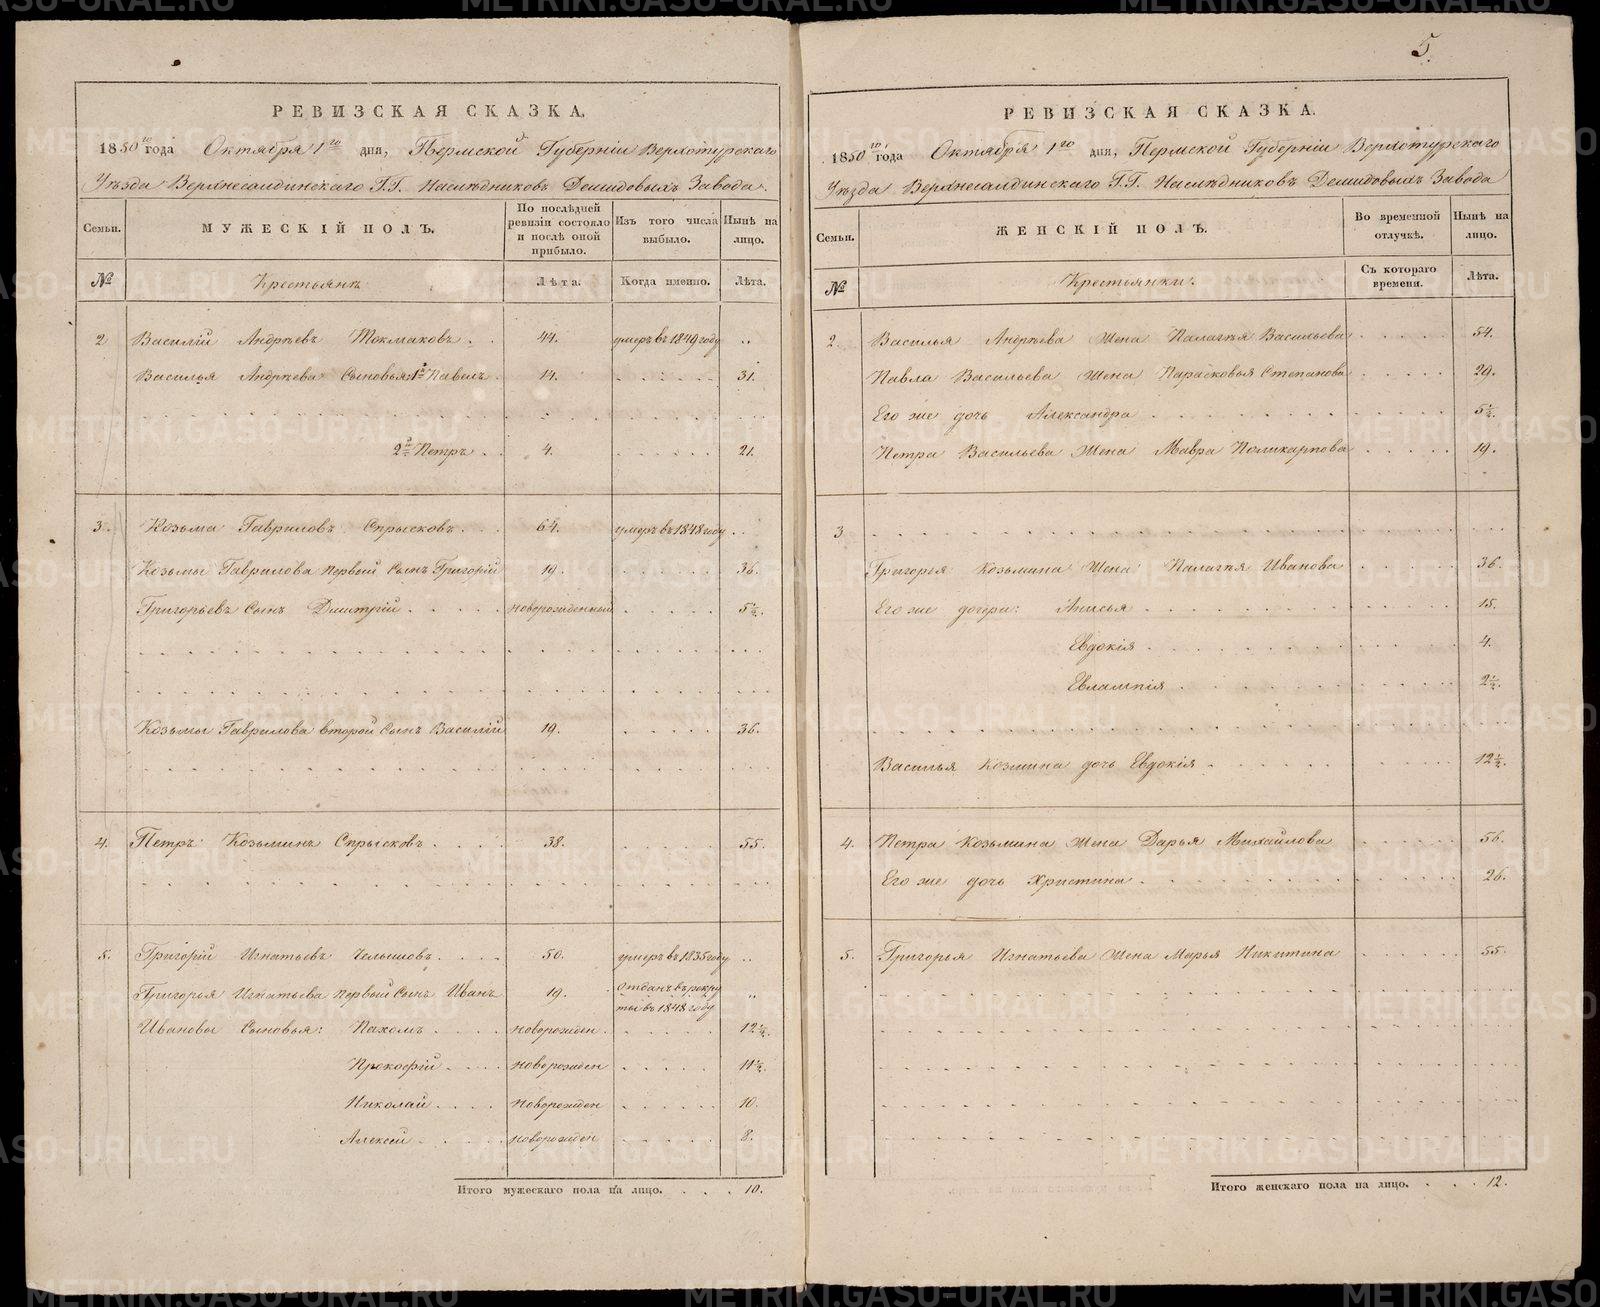 5.
РЕВИЗСКАЯ СКАЗКА.
1850го года Октября 1го дня, Пермской Губернiи Верхотурскаго
Уѣзда Верхнесалдинскаго Г.Г. Наслѣдниковъ Демидовыхъ Завода.
Семьи. МУЖЕСКIЙ ПОЛЪ. По послѣдней ревизiи состояло и послѣ оной прибыло. Изъ того числа выбыло. Нынѣ на лицо.
№ Крестьянъ Лѣта. Когда именно. Лѣта.
2 Василiй Андрѣевъ Токмаковъ . . 44. умеръ въ 1849 году . .
Василья Андрѣева Сыновья: 1й Павелъ . 14. . . . . . 31.
2й Петръ . . 4. . . . . . 21.
3. Козьма Гавриловъ Спрысковъ . . . 64. умеръ въ 1848 году . .
Козьмы Гаврилова первый сынъ Григорiй 19. . . . . . 36.
Григорьевъ Сынъ Дмитрiй . . . . . новорожденный . . . . . 5½.
Козьмы Гаврилова второй сынъ Василiй 19. . . . . . 36.
4. Петръ Козьминъ Спрысковъ . . . . 38. . . . . . 55.
5. Григорiй Игнатьевъ Челышовъ . . . . 50. умеръ въ 1835 году . .
Григорья Игнатьева первый Сынъ Иванъ 19. отданъ въ рекруты въ 1848 году „
Ивановы Сыновья: Пахомъ . . . . новорожден . . . . . . 12½.
Прокофiй . . . . новорожден . . . . . 11½.
Николай . . . . новорожден . . . . . 10.
Алексей . . . . новорожден . . . . . 8.
Итого мужескаго пола на лицо. . . . . 10.
РЕВИЗСКАЯ СКАЗКА.
1850го года Октября 1го дня, Пермской Губернiи Верхотурскаго
Уѣзда Верхнесалдинскаго Г.Г. Наслѣдниковъ Демидовыхъ Завода
Семьи. ЖЕНСКIЙ ПОЛЪ. Во временной отлучкѣ. Нынѣ на лицо.
№ Крестьянки. Съ котораго времени. Лѣта.
2. Василья Андрѣева Жена Палагѣя Васильева . . . . . 54.
Павла Васильева Жена Парасковья Степанова . . . . . 29.
Его же дочь Александра . . . . . 5½.
Петра Васильева Жена Мавра Поликарпова . . . . . 19.
3
Григорья Козьмина Жена Палагѣя Иванова . . . . . 36.
Его же дочери: Анисья . . . . . 15.
Евдокiя . . . . . 4.
Евлампiя . . . . . 2½.
Василья Козмина дочь Евдокiя . . . . . 12½.
4. Петра Козьмина Жена Дарья Михайлова . . . . . 56.
Его же дочь Христина . . . . . 26.
5. Григорья Игнатьева Жена Марья Никитина . . . . . 55.
Итого женскаго пола на лицо. . . . . 12.
METRIKI.GASO-URAL.RU